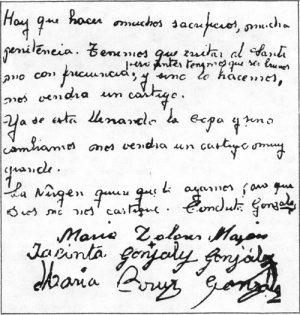 Hay que hacer muchos sacrificios, mucha
penitencia. Tenemos que visitar al Santí
pero antes tenemos que ser buenos
simo con frecuencia, y sino lo hacemos,
nos vendra un castigo.
Ya se está llenando la copa y sino
cambiamos nos vendra un castigo muy
grande.
La Virgen quiere que lo hagamos para que
Dios no nos castigue. Conchita González
Maria Dolores Mazon
Jacinta González González
Maria Cruz González